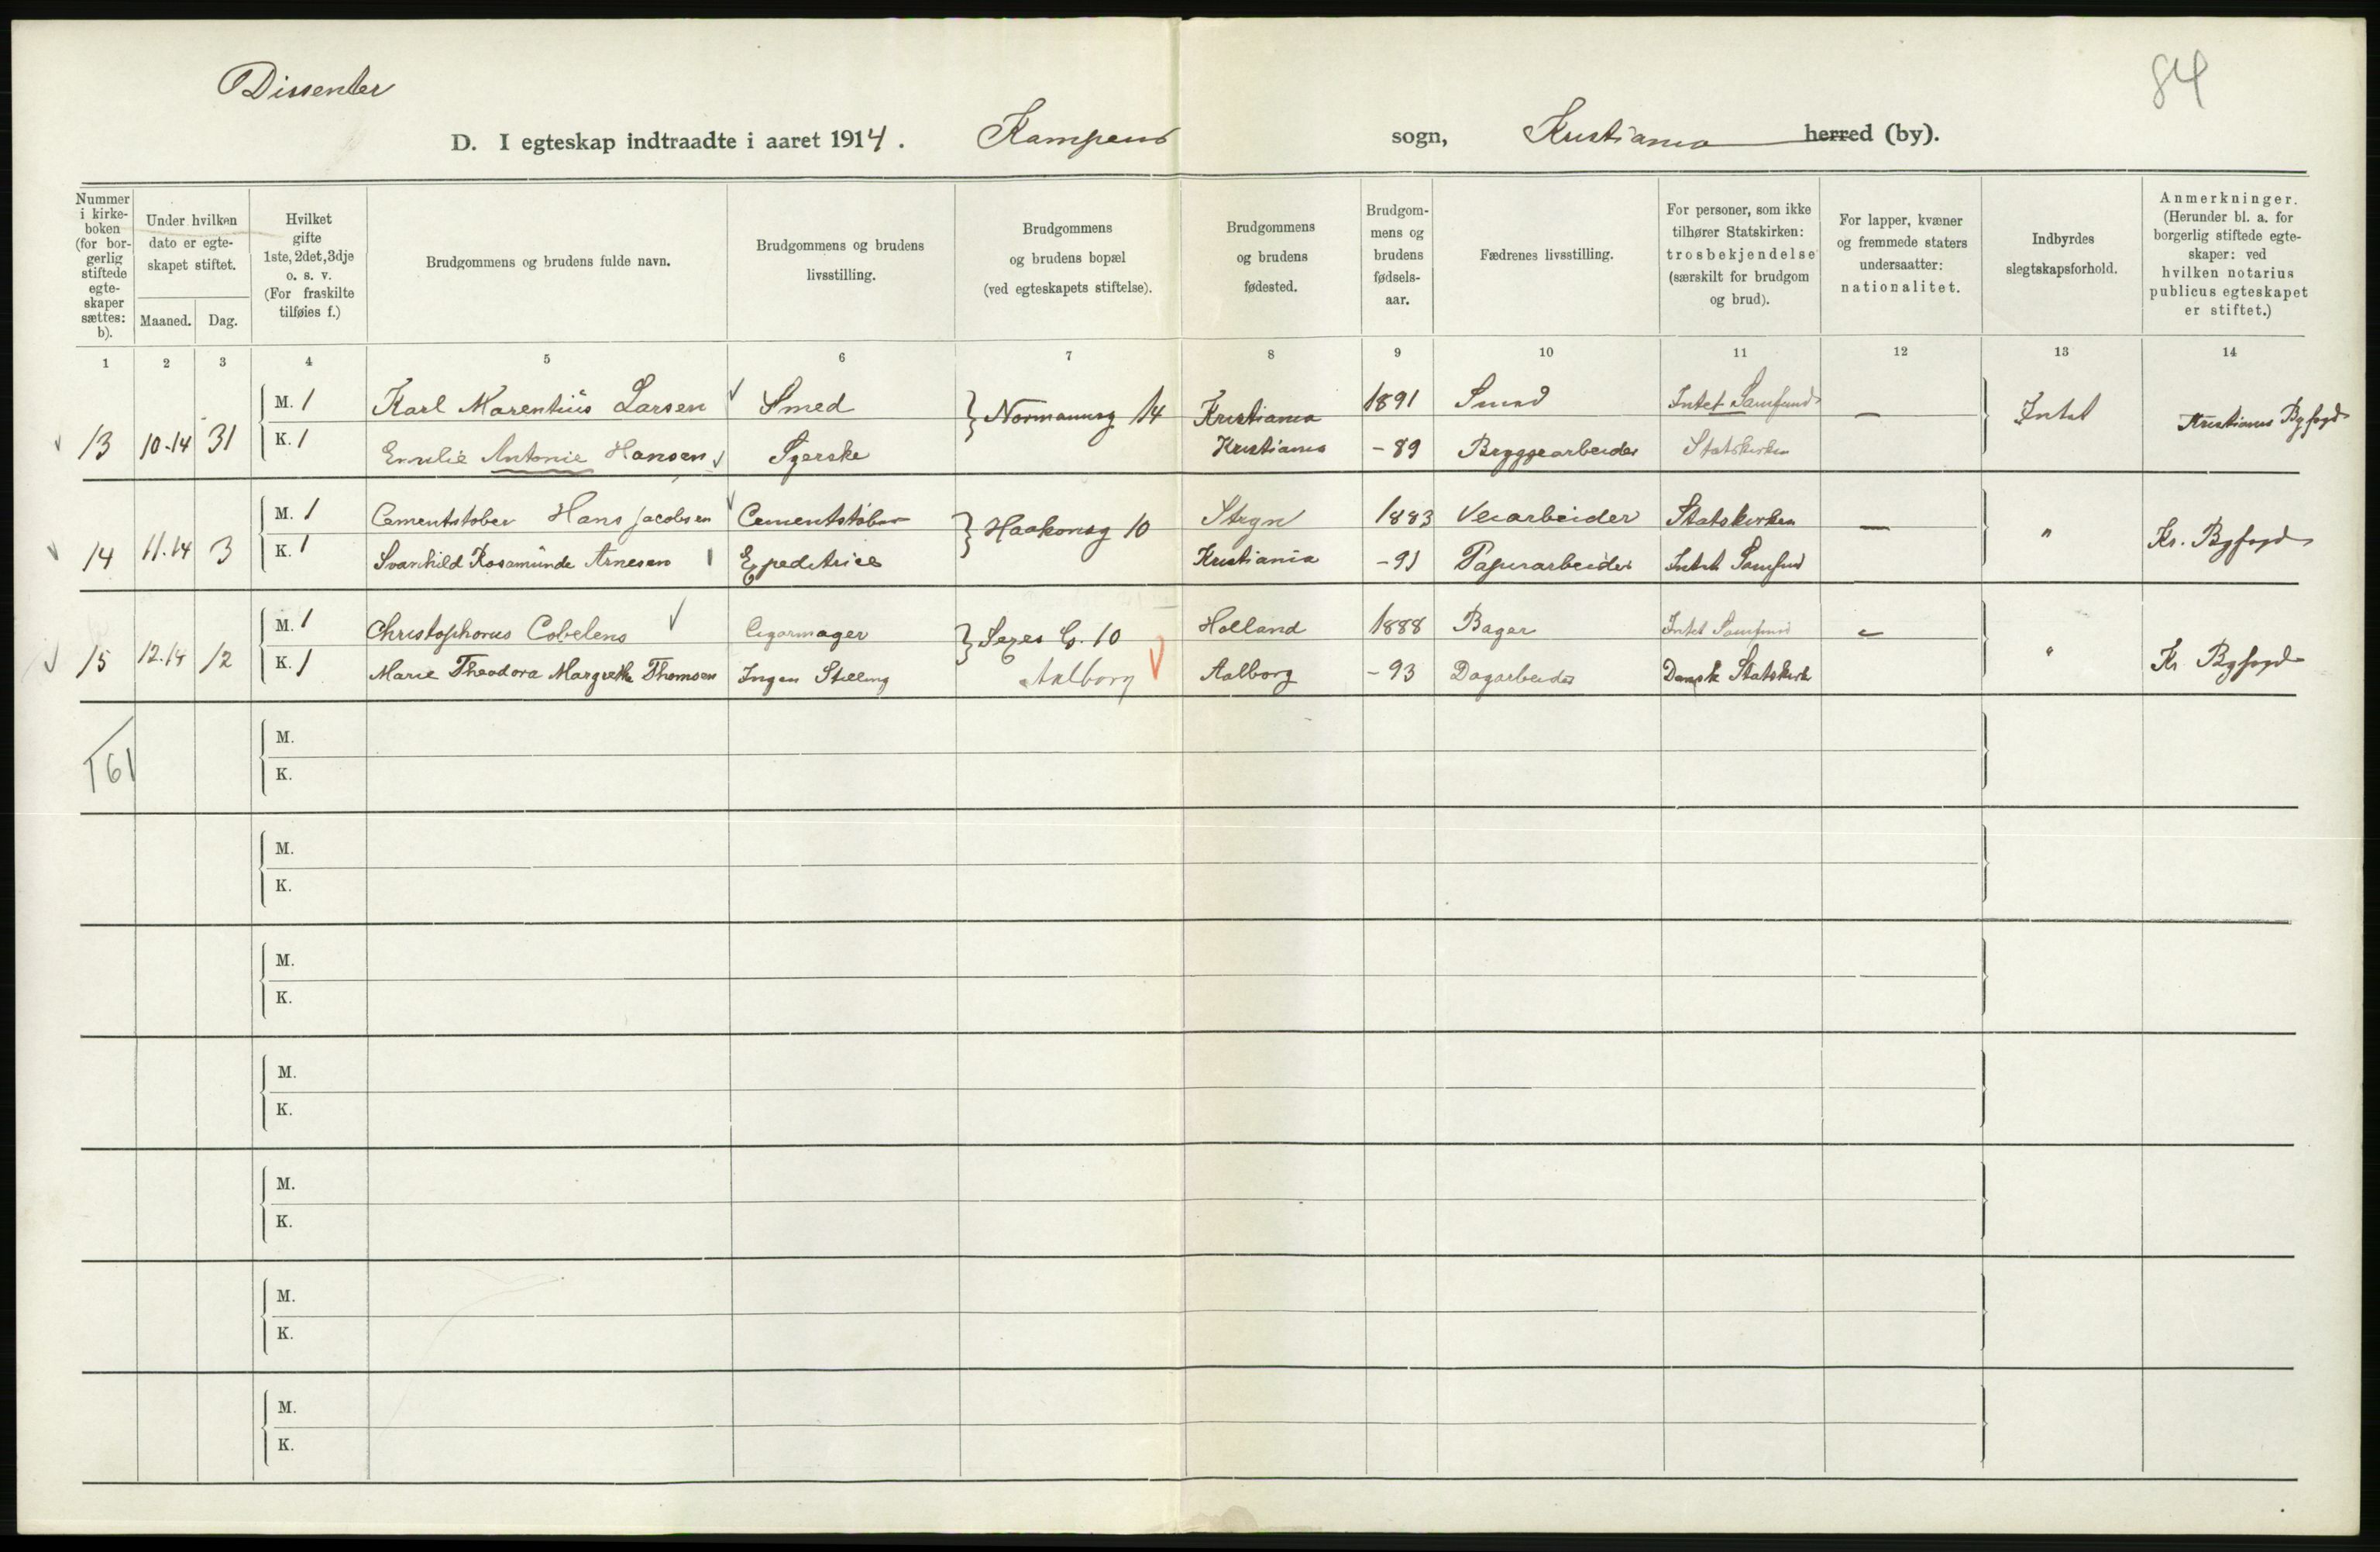 Dissenter
84
D. I egteskap indtraadte i aaret 1914. Kampens sogn, Kristiania herred (by).
Nummer i kirke-boken (for bor-gerlig stiftede egte-skaper sættes: b).
Under hvilken dato er egte-skapet stiftet.
Maaned. Dag.
Hvilket gifte 1ste, 2det, 3dje o. s. v. (For fraskilte tilføies f.)
Brudgommens og brudens fulde navn.
Brudgommens og brudens livsstilling.
Brudgommens og brudens bopæl (ved egteskapets stiftelse).
Brudgommens og brudens fødested.
Brudgom-mens og brudens fødsels-aar.
Fædrenes livsstilling.
For personer, som ikke tilhører Statskirken: trosbekjendelse (særskilt for brudgom og brud).
For lapper, kvæner og fremmede staters undersaatter: nationalitet.
Indbyrdes slegtskapsforhold.
Anmerkninger. (Herunder bl. a. for borgerlig stiftede egte-skaper: ved hvilken notarius publicus egteskapet er stiftet.)
1 2 3 4 5 6 7 8 9 10 11 12 13 14
13 10-14 31 M. 1 Karl Marentius Larsen Smed Normannsg 14 Kristiania 1891 Smed Intet Samfund — Intet Kristiania Byfogd
K. 1 Emilie Antonie Hansen Syerske Kristiania -89 Bryggearbeider Statskirken
14 11.14 3 M. 1 Cementstøber Hans Jacobsen Cementstøber Haakonsg 10 Stryn 1883 Veiarbeider Statskirken — " Kr. Byfogd
K. 1 Svanhild Rosamunde Arnesen Expeditrice Kristiania -91 Papirarbeider Intet Samfund
15 12.14 12 M. 1 Christophorus Cobelens Cigarmager G. 10 Holland 1888 Bager Intet Samfund - " Kr. Byfogd
K. 1 Marie Theodora Margrethe Thomsen Ingen Stilling Aalborg Aalborg -93 Dagarbeider Dansk Statskirke
161
M.
K.
M.
K.
M.
K.
M.
K.
M.
K.
M.
K.
M.
K.